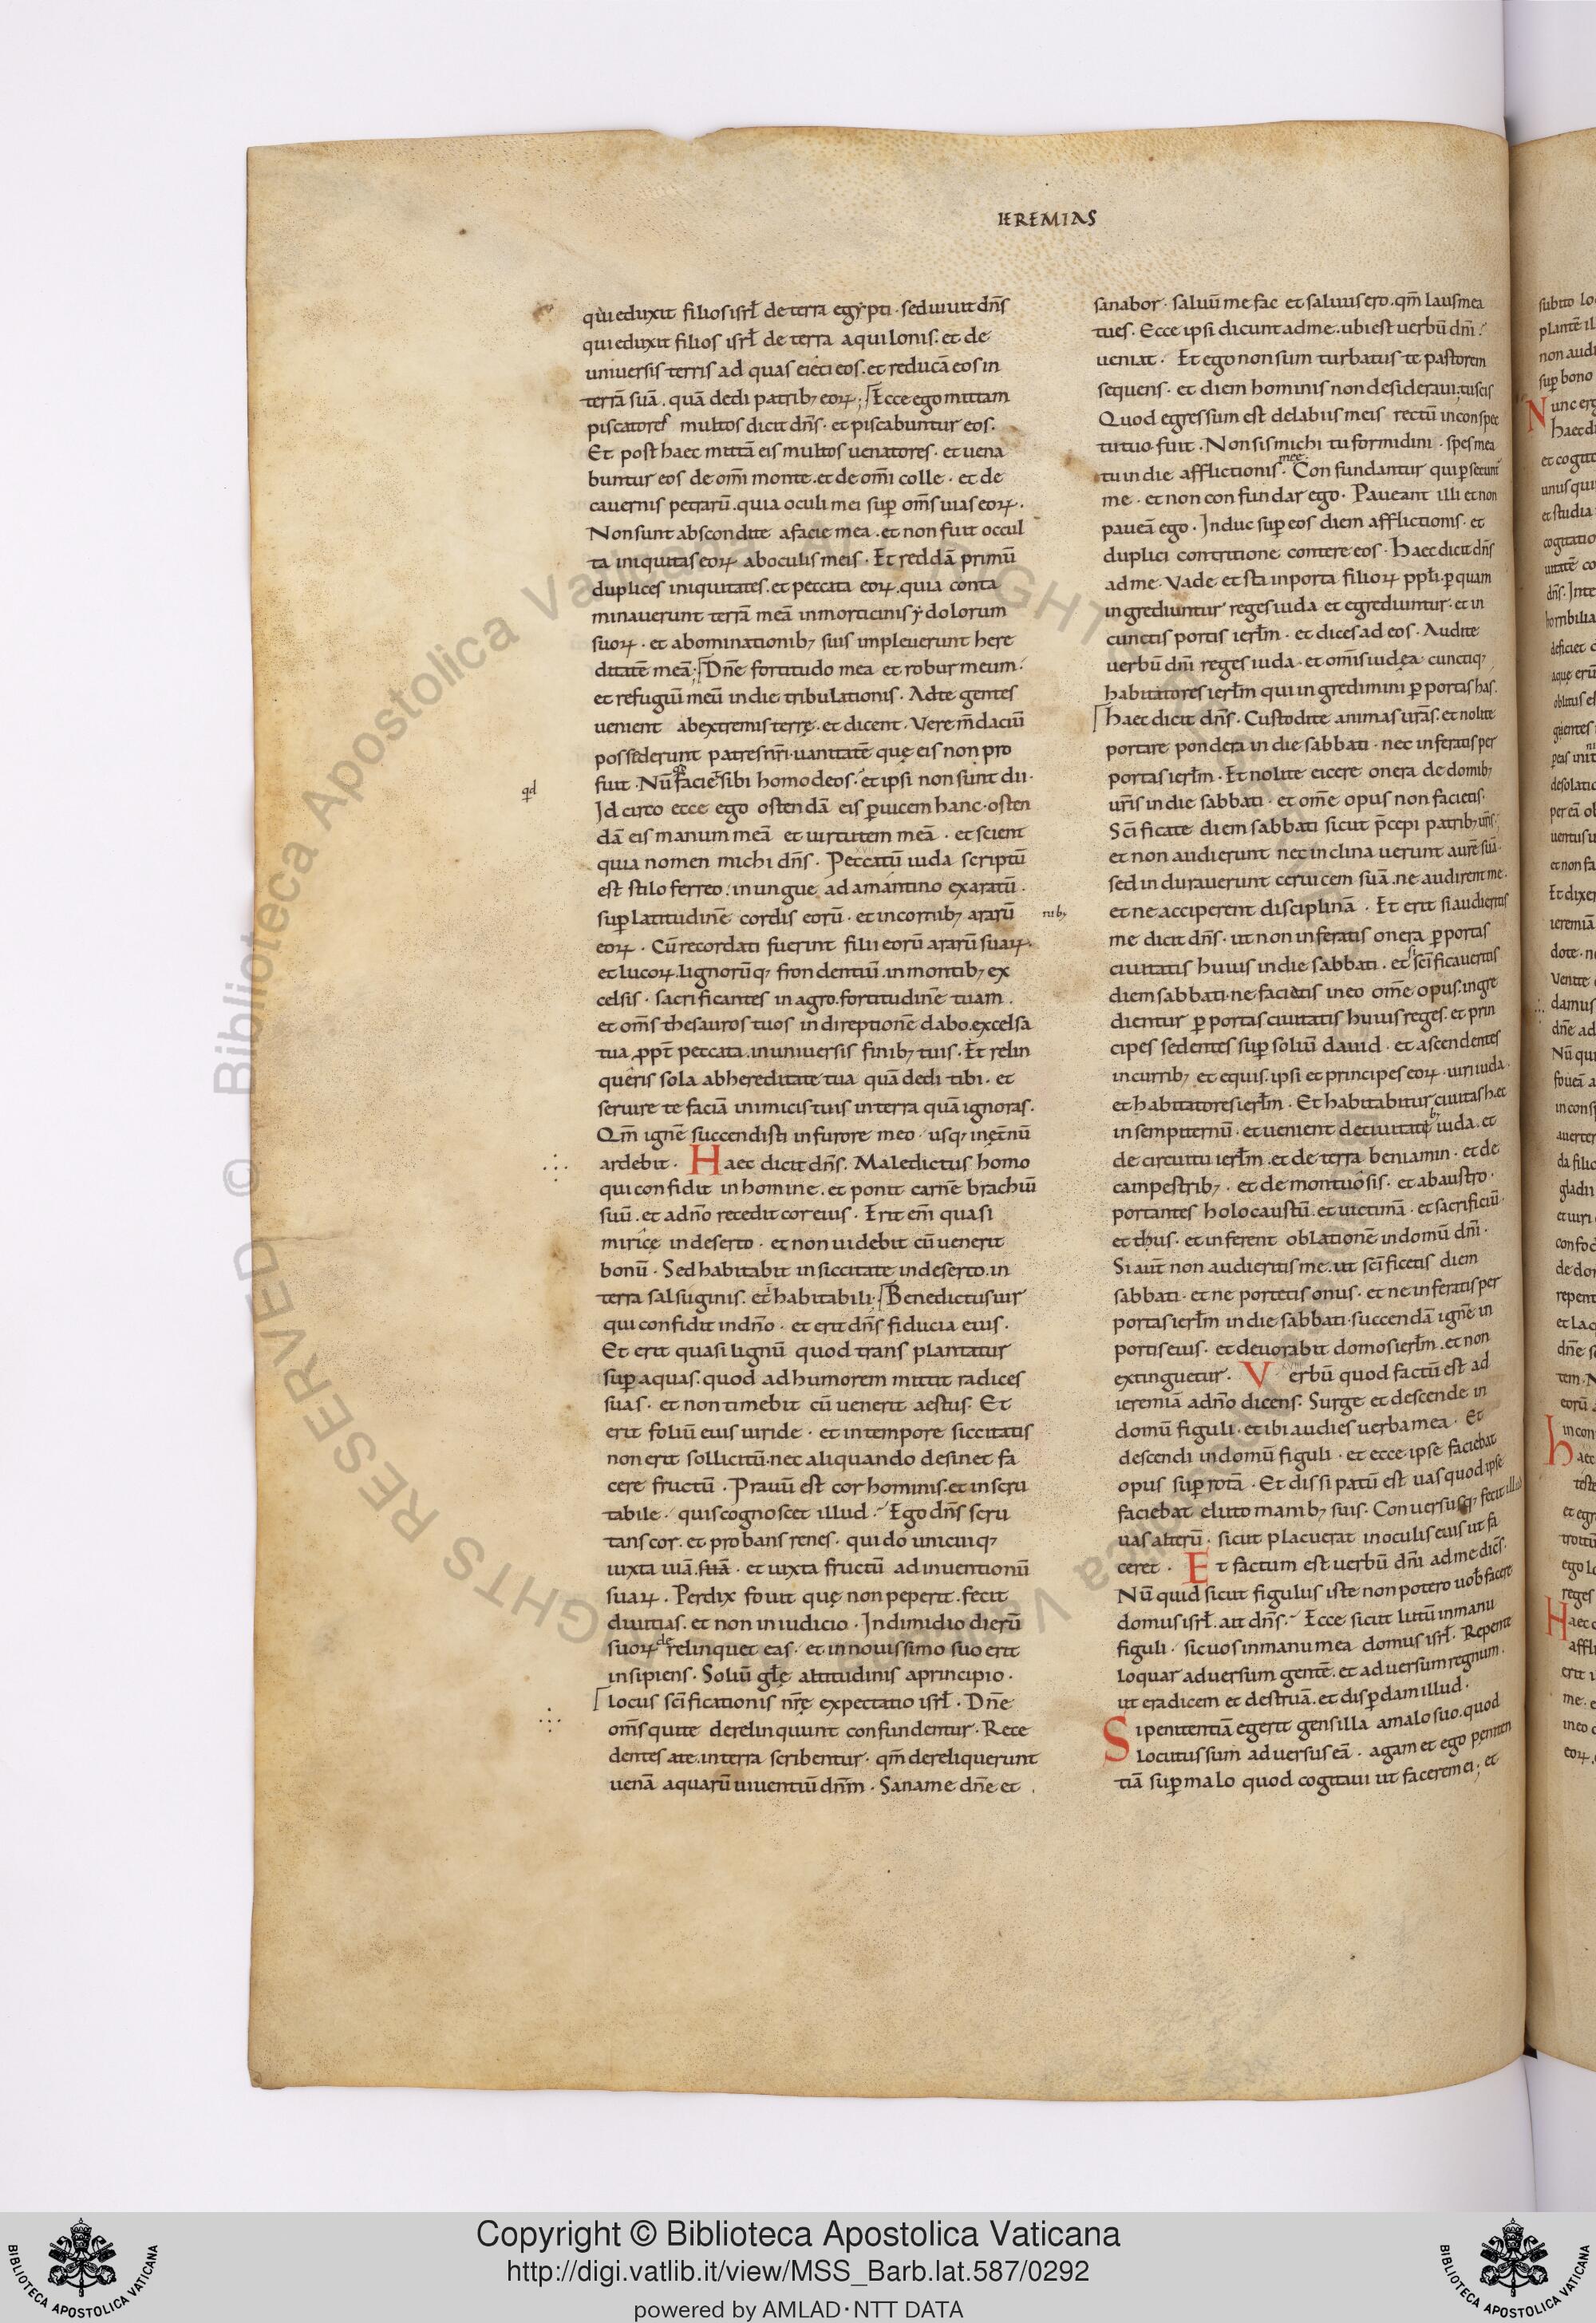 IEREMIAS
qui eduxit filios isrł de terra egypti · sed vivit dn̄s
qui eduxit filios isrł de terra aquilonis. et de
universis terris ad quas eieci eos. et reducā eos in
terrā suā. quā dedi patrib; eoꝝ; Ecce ego mittam
piscatores multos dicit dn̄s · et piscabuntur eos.
Et post haec mittā eis multos venatores · et vena
buntur eos de om̄i monte. et de om̄i colle · et de
cavernis petrarū. quia oculi mei suꝑ om̄s vias eoꝝ.
Non sunt abscondite a facie mea. et non fuit occul
ta iniquitas eoꝝ ab oculis meis · Et reddā primū
duplices iniquitates. et peccata eoꝝ. quia conta
minaverunt terrā meā in morticinis ydolorum
suoꝝ · et abominationib; suis impleverunt here
ditatē meā; Dn̄e fortitudo mea et robur meum.
et refugiū meū in die tribulationis. Ad te gentes
venient ab extremis terrę. et dicent. Vere m̄daciū
possederunt patres nr̄i. vanitatē que eis non pro
fuit. Nū facie sibi homo deos. et ipsi non sunt dii.
qđ
Idcirco ecce ego ostendā eis ꝑ vicem hanc. osten
dā eis manum meā et virtutem meā · et scient
quia nomen michi dn̄s. Peccatū iuda scriptū
est stilo ferreo. in ungue adamantino exaratū.
suꝑ latitudinē cordis eorū · et in cornib; ararū
rūb;
eoꝝ. Cū recordati fuerint filii eorū ararū suaꝝ.
et lucoꝝ. lignorūq; frondentiū. in montib; ex
celsis · sacrificantes in agro. fortitudinē tuam.
et om̄s thesauros tuos in direptionē dabo. excelsa
tua ꝓpt̄ peccata. in universis finib; tuis. Et relin
queris sola ab hereditate tua quā dedi tibi. et
servire te faciā inimicis tuis in terra quā ignoras.
Qm̄ ignē succendisti in furore meo · usq; in ęt̄nū
ardebit. Haec dicit dn̄s. Maledictus homo
qui confidit in homine. et ponit carnē brachiū
suū. et a dn̄o recedit cor eius. Erit em̄ quasi
miricę in deserto · et non videbit cū venerit
bonū. Sed habitabit in siccitate in deserto. in
terra salsuginis. et i habitabili. Benedictus vir
qui confidit in dn̄o · et erit dn̄s fiducia eius.
Et erit quasi lignū quod transplantatur
suꝑ aquas. quod ad humorem mittit radices
suas · et non timebit cū venerit aestus. Et
erit foliū eius viride · et in tempore siccitatis
non erit sollicitū. nec aliquando desinet fa
cere fructū. Pravū est cor hominis. et inscru
tabile · quis cognoscet illud. Ego dn̄s scru
tans cor. et probans renes · qui do unicuiq;
iuxta viā. suā · et iuxta fructū adinventionū
suaꝝ. Perdix fovit quę non peperit. fecit
divitias. et non in iudicio. In dimidio dierū
suoꝝ derelinquet eas · et in novissimo suo erit
insipiens. Soliū głę altitudinis a principio.
locus sc̄ificationis nr̄ę expectatio isrł. Dn̄e
om̄s qui te derelinquunt confundentur. Rece
dentes a te. in terra scribentur · qm̄ dereliquerunt
venā aquarū viventiū dn̄m. Sana me dn̄e et
sanabor · salvū me fac et salvus ero. qm̄ laus mea
tu es. Ecce ipsi dicunt ad me. ubi est verbū dn̄i
veniat. Et ego non sum turbatus te pastorem
sequens · et diem hominis non desideravi. tu scis
Quod egressum est de labiis meis rectū in conspec
tu tuo fuit. Non sis michi tu formidini · spes mea
tu in die afflictionis mee. Confundantur qui ꝑsecunt
me · et non confundar ego. Paveant illi et non
paveā ego. Induc suꝑ eos diem afflictionis. et
duplici contritione contere eos. Haec dicit dn̄s
ad me. Vade et sta in porta filioꝝ ppłi. ꝑ quam
ingrediuntur reges iuda et egrediuntur. et in
cunctis portis ierłm · et dices ad eos. Audite
verbū dn̄i reges iuda · et om̄is iudęa cunctiq;
habitatores ierłm qui ingredimini ꝑ portas has.
haec dicit dn̄s. Custodite animas vr̄as. et nolite
portare pondera in die sabbati · nec inferatis per
portas ierłm. Et nolite eicere onera de domib;
vr̄is in die sabbati · et om̄e opus non facietis.
Sc̄ificate diem sabbati sicut p̄cepi patrib; vr̄is.
et non audierunt nec inclinaverunt aurē suā.
sed induraverunt cervicem suā. ne audirent me.
et ne acciperent disciplinā. Et erit si audieritis
me dicit dn̄s. ut non inferatis onera ꝑ portas
civitatis huius in die sabbati. et si sc̄ificaveritis
diem sabbati. ne faciatis in eo om̄e opus. ingre
dientur ꝑ portas civitatis huius reges. et prin
cipes sedentes suꝑ soliū david · et ascendentes
in currib; et equis. ipsi et principes eoꝝ. viri iuda.
et habitatores ierłm. Et habitabitur civitas h. et
in sempiternū · et venient de civitatib; iuda. et
de circuitu ierłm. et de terra beniamin. et de
campestrib; · et de montuosis. et ab austro.
portantes holocaustū. et victimā · et sacrificiū.
et thus. et inferent oblationē in domū dn̄i.
Si aut̄ non audieritis me. ut sc̄ificetis diem
sabbati · et ne portetis onus. et ne inferatis per
portas ierłm in die sabbati. succendā ignē in
portis eius. et devorabit domos ierłm. et non
extinguetur. Verbū quod factū est ad
ieremiā a dn̄o dicens. Surge et descende in
domū figuli. et ibi audies verba mea. Et
descendi in domū figuli · et ecce ipse faciebat
opus suꝑ rotā. Et dissipatū est vas quod ipse
faciebat e luto manib; suis. Conversusq; fecit illud
vas alterū. sicut placuerat in oculis eius ut fa
ceret. Et factum est verbū dn̄i ad me dicēs.
Nū quid sicut figulus iste non potero vob̄ facere
domus isrł. ait dn̄s. Ecce sicut lutū in manu
figuli. sic vos in manu mea domus isrł. Repente
loquar adversum gentē. et adversum regnum.
ut eradicem et destruā. et disꝑdam illud.
Si penitentiā egerit gens illa a malo suo. quod
locutus sum adversus eā. agam et ego peniten
tiā suꝑ malo quod cogitavi ut facerem ei; et
Copyright © Biblioteca Apostolica Vaticana
http://digi.vatlib.it/view/MSS_Barb.lat.587/0292
powered by AMLAD·NTT DATA